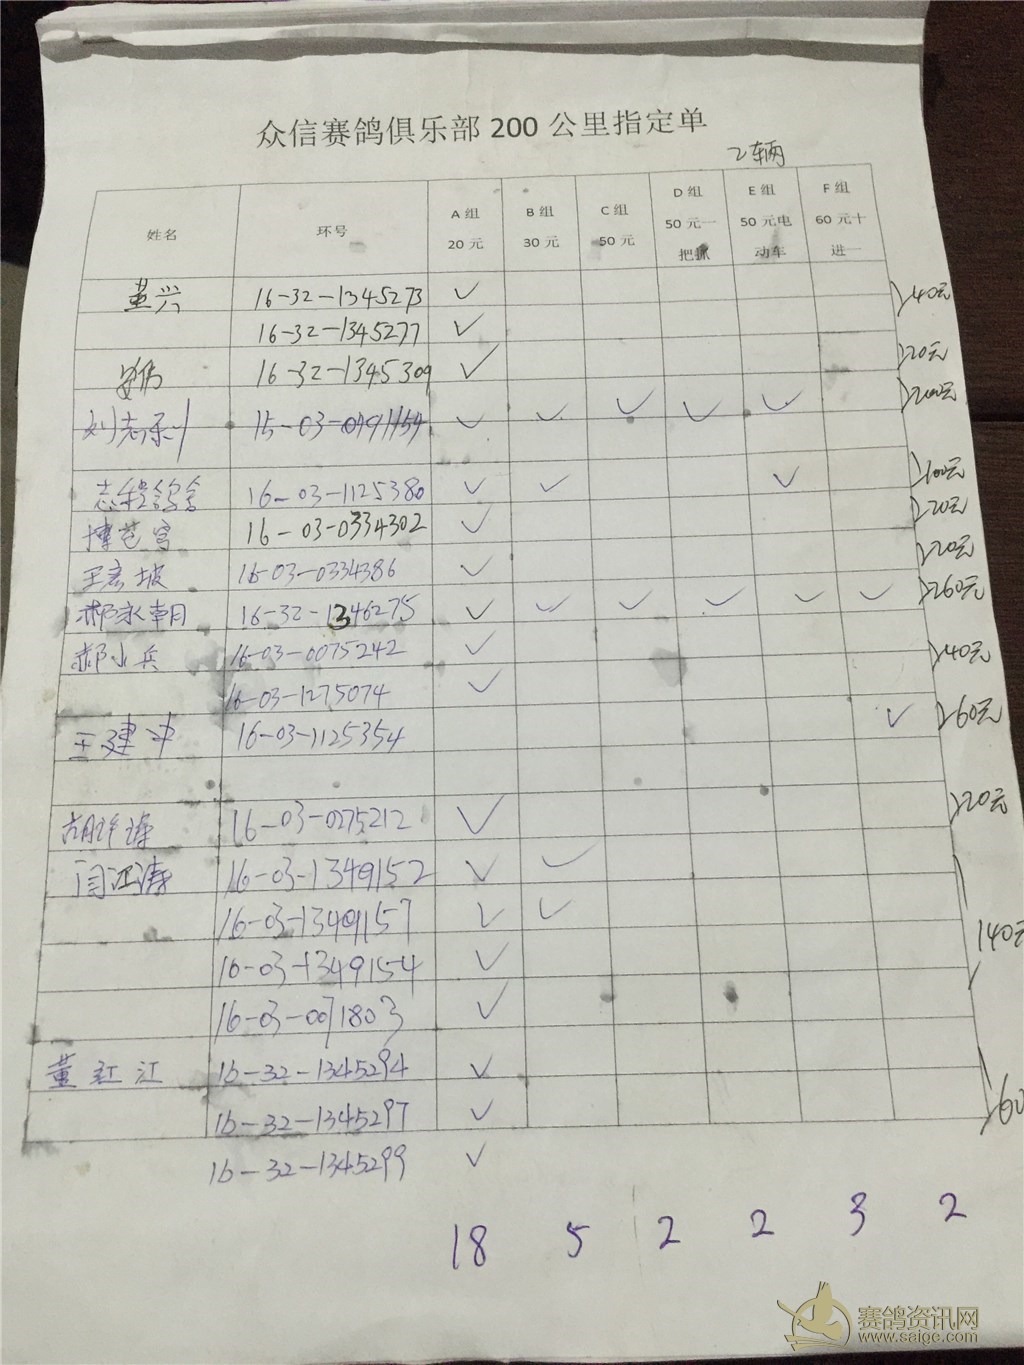 众信赛鸽俱乐部 200 公里指定单
2辆
姓名 环号 A 组 20 元 B 组 30 元 C 组 50 元 D 组 50 元一把抓 E 组 50 元电动车 F 组 60 元十进一
董兴 16-32-1345273 ✓ 40元
16-32-1345277 ✓
16-32-1345309 ✓ 20元
刘志利 15-03-0491154 ✓ ✓ ✓ ✓ ✓ 200元
志程鸽舍 16-03-1125380 ✓ ✓ ✓ 100元
16-03-0334302 ✓ 20元
王彦坡 16-03-0334386 ✓ 20元
郝永朝 16-32-1346275 ✓ ✓ ✓ ✓ ✓ ✓ 260元
郝小兵 16-03-0075242 ✓ 40元
16-03-1275074 ✓
王建中 16-03-1125354 ✓ 60元
胡 涛 16-03-0275212 ✓ 20元
闫江涛 16-03-1349152 ✓ ✓
16-03-1349157 ✓ ✓ 140元
16-03-1349154 ✓
16-03-0071803 ✓
董红江 16-32-1345294 ✓
16-32-1345297 ✓ 60
16-32-1345299 ✓
18 5 2 2 3 2
赛鸽资讯网
www.saige.com